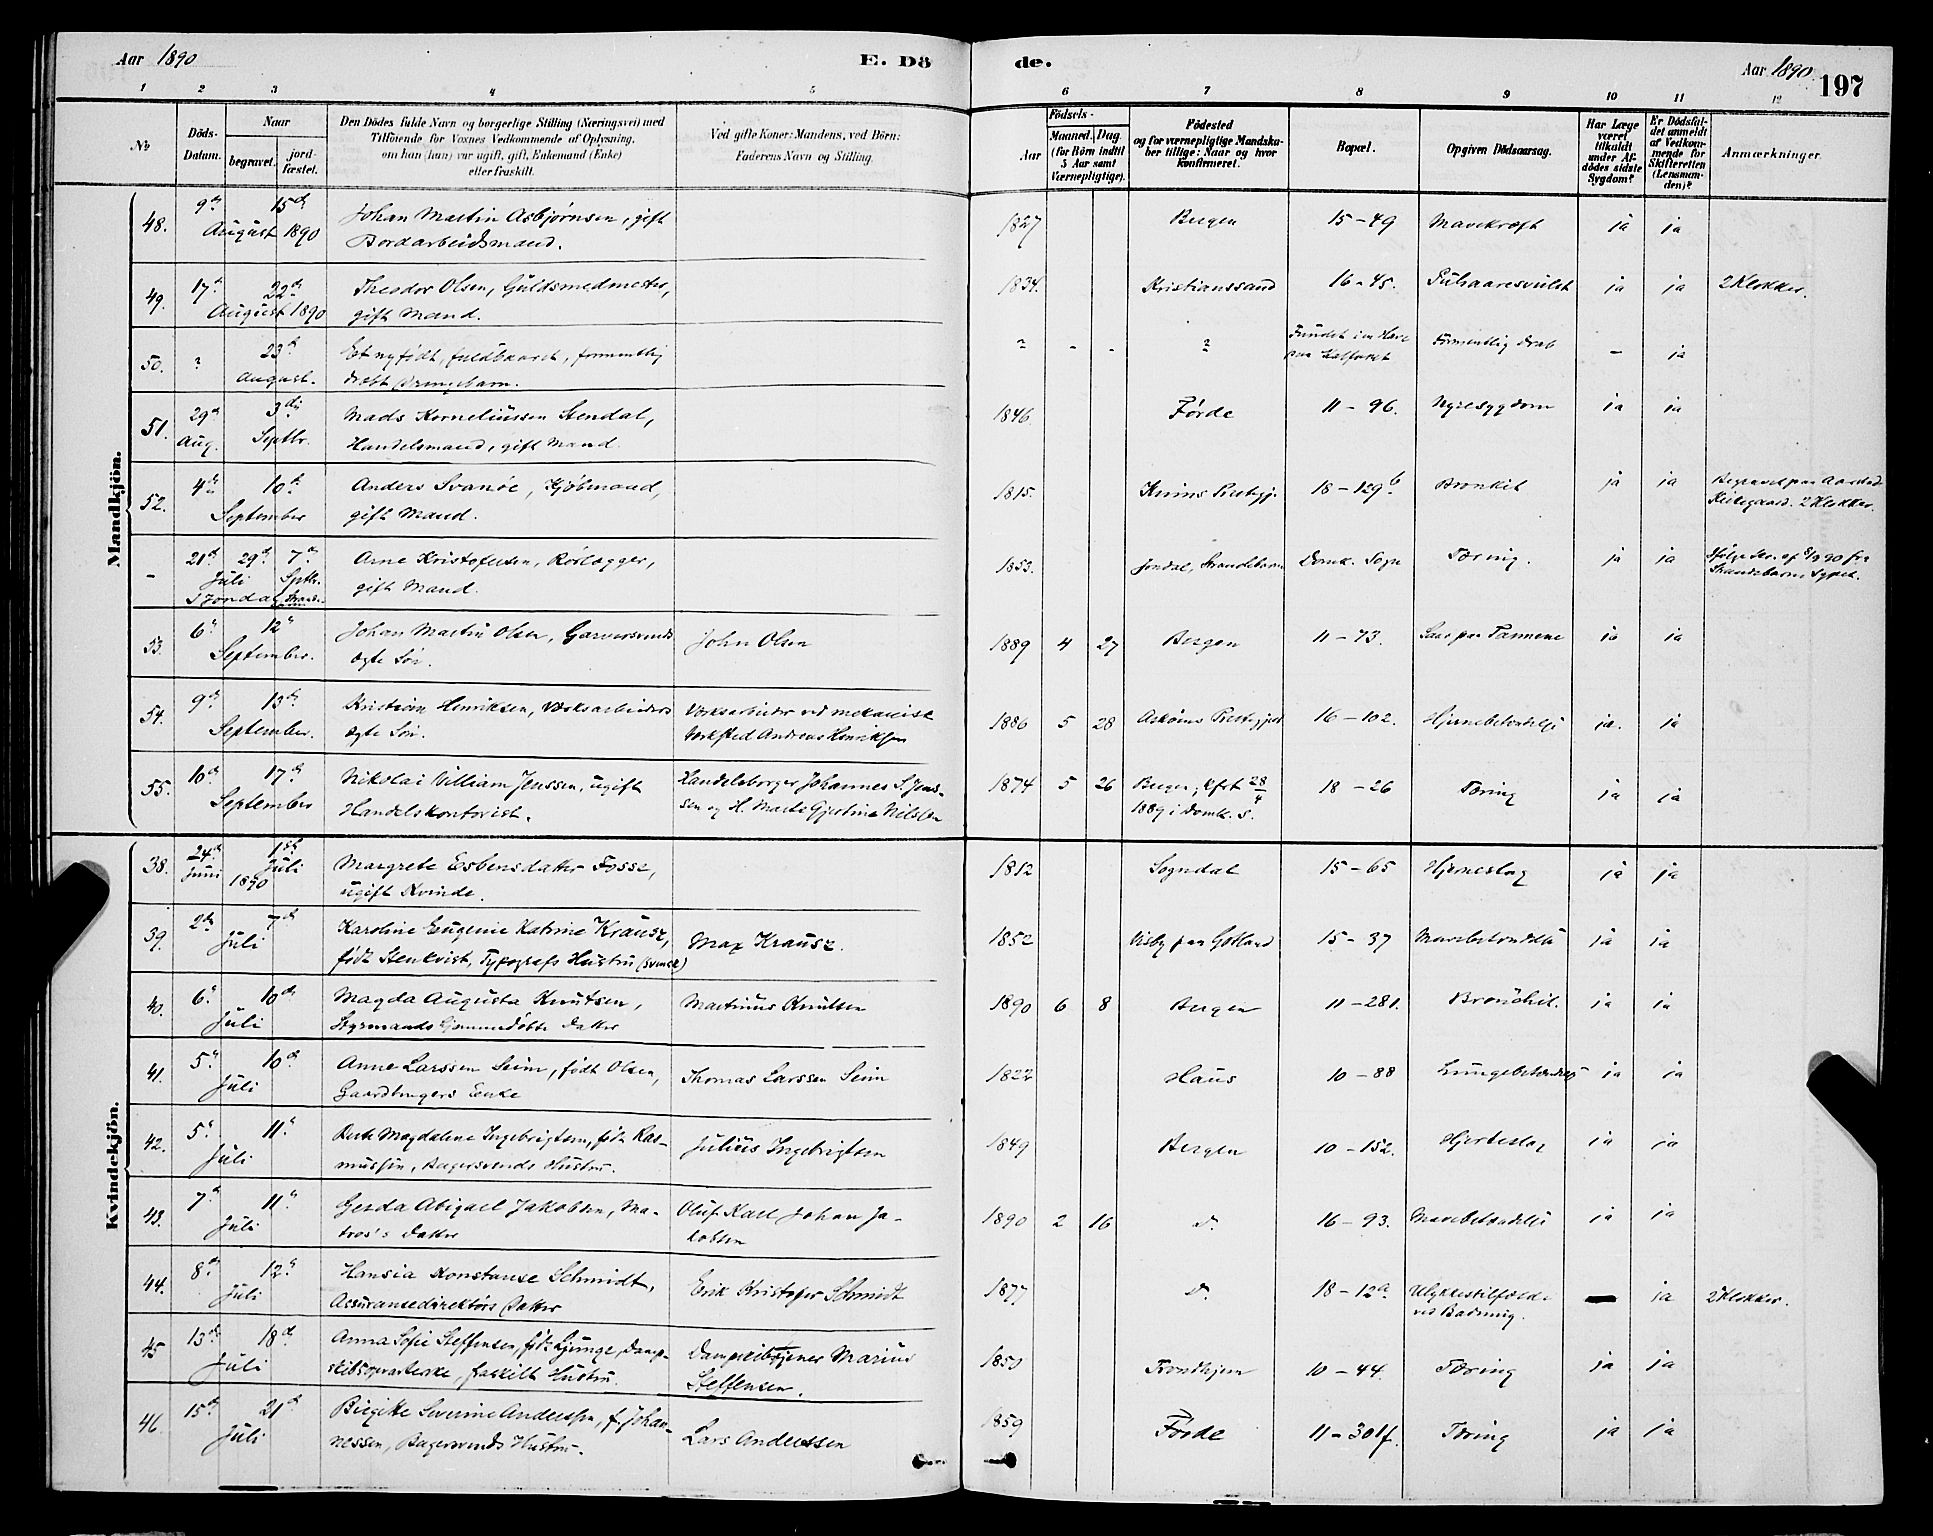 Aar 1890
E. Dö
de.
Aar 1890.
197
1 2 3 4 5 6 7 8 9 10 11 12
№
Döds-
Datum.
Naar
begravet.
jord-
fæstet.
Den Dödes fulde Navn og borgerlige Stilling (Næringsvei) med
Tilföiende for Voxnes Vedkommende af Oplysning,
om han (hun) var ugift, gift, Enkemand (Enke)
eller fraskilt.
Ved gifte Koner: Mandens, ved Börn:
Faderens Navn og Stilling.
Födsels-
Aar
Maaned.
Dag.
(for Börn indtil
5 Aar samt
Værnepligtige).
Födested
og for værnepligtige Mandska-
ber tillige: Naar og hvor
konfirmeret.
Bopæl.
Opgiven Dödsaarsag.
Har Læge
været
tilkaldt
under Af-
dödes sidste
Sygdom?
Er Dödsfal-
det anmeldt
af Vedkom-
mende for
Skifteretten
(Lensman-
den)?
Anmærkninger.
Mandkjön.
48. 9de 15de Johan Martin Asbjørnsen, gift 1827 Bergen 15-49 Mavekræft ja ja
August 1890 Bordarbeidsmand.
49. 17de 22de Theodor Olsen, Guldsmedmester, 1834. Kristianssand 16-45. ja ja 2 Klokker.
August 1890 gift Mand.
50. ? 23de Et nyfødt, fuldbaaret, formentlig ? - - ? Fundet i en Have Formentlig Drab - ja
August. dræbt Drengebarn. paa Kalfaret
51. 29de 3die Mads Korneliussen Stendal, 1846. Førde 11-96. Nyresygdom ja ja
Aug. Septbr. Handelsmand, gift Mand.
52. 4de 10de Anders Svanøe, Kjøbmand, 1815. Kinns Prestegj. 18-129b Bronkit ja ja Begravet paa Aarstad
September gift Mand. Kirkegaard. 2 Klokker.
- 21de 29de 7de Arne Kristofersen, Rørlægger, 1853. Jondal, Strandebarm Domk. Sogn Tæring. ja ja
Juli Sptb. gift Mand.
I Jondal Strand.
53. 6te 12te Johan Martin Olsen, Garversvends John Olsen 1889 4 27 Bergen 11-73. ja ja
September. ægte Søn.
54. 9de 13de Kristian Henriksen, Værksarbeiders Værksarbeider ved mekanisk 1886 5 28 Askøens Prestegjeld 16-102. Hjernebetændelse ja. ja
September. ægte Søn. Værksted Andreas Henriksen
55. 10de 17de Nikolai William Jenssen, ugift Handelsborger Johannes S. Jens- 1874 5 26 Bergen, kfrt 28/4 18-26 Tæring ja ja
September Handelskontorist. sen og H. Marte Gjertine Nilssen 1889 i Domk. S.
Kvindekjön.
38. 24de 1ste Margrete Esbensdatter Fosse, 1812 Sogndal 15-65 Hjerneslag ja ja
Juni 1890 Juli ugift Kvinde.
39. 2den 7de Karoline Eugenie Katrine Krausz, Max Krausz. 1852 Visby paa Gotland 15-37 Mavebetændelse ja ja
Juli født Stenkvist, Typografs Hustru (svensk)
40. 6te 10de Magda Augusta Knutsen, Martinus Knutsen 1890 6 8 Bergen 11-281. Bronchit. ja ja
Juli Styrmands Hjemmedøbte Datter
41. 5te 10de Anne Larssen Seim, født Olsen, Thomas Larssen Seim 1822 Haus 10-88 Lungebetændelse ja ja
Juli Gaardbrugers Enke
42. 5te 11te Berte Magdalene Ingebrigtsen, født Ras- Julius Ingebrigtsen 1849 Bergen 10-152. Hjerteslag ja ja
Juli mussen, Bagersvends Hustru.
43. 7de 11te Gerda Abigael Jakobsen, Ma- Oluf Karl Johan Ja- 1890 2 16 Do. 16-93. Mavebetændelse ja ja
Juli tros's Datter kobsen
44. 8de 12te Hansia Konstanse Schmidt, Erik Kristofer Schmidt 1877 Do. 18-12a. Ulykkestilfælde — ja 2 Klokker.
Juli Assurancedirektørs Datter ved Badning.
45 13de 18de Anna Sofie Steffensen, født Ljunge, Damp- Dampskibstjener Marius 1850 Trondhjem 10-44. Tæring ja ja
Juli skibsopvarterske, fraskilt Hustru. Steffensen.
46. 15de 21de Birgitte Severine Anderssen, f. Johan- Lars Anderssen 1859 Førde 11-301f. Tæring ja ja
Juli nessen, Bagersvends Hustru.